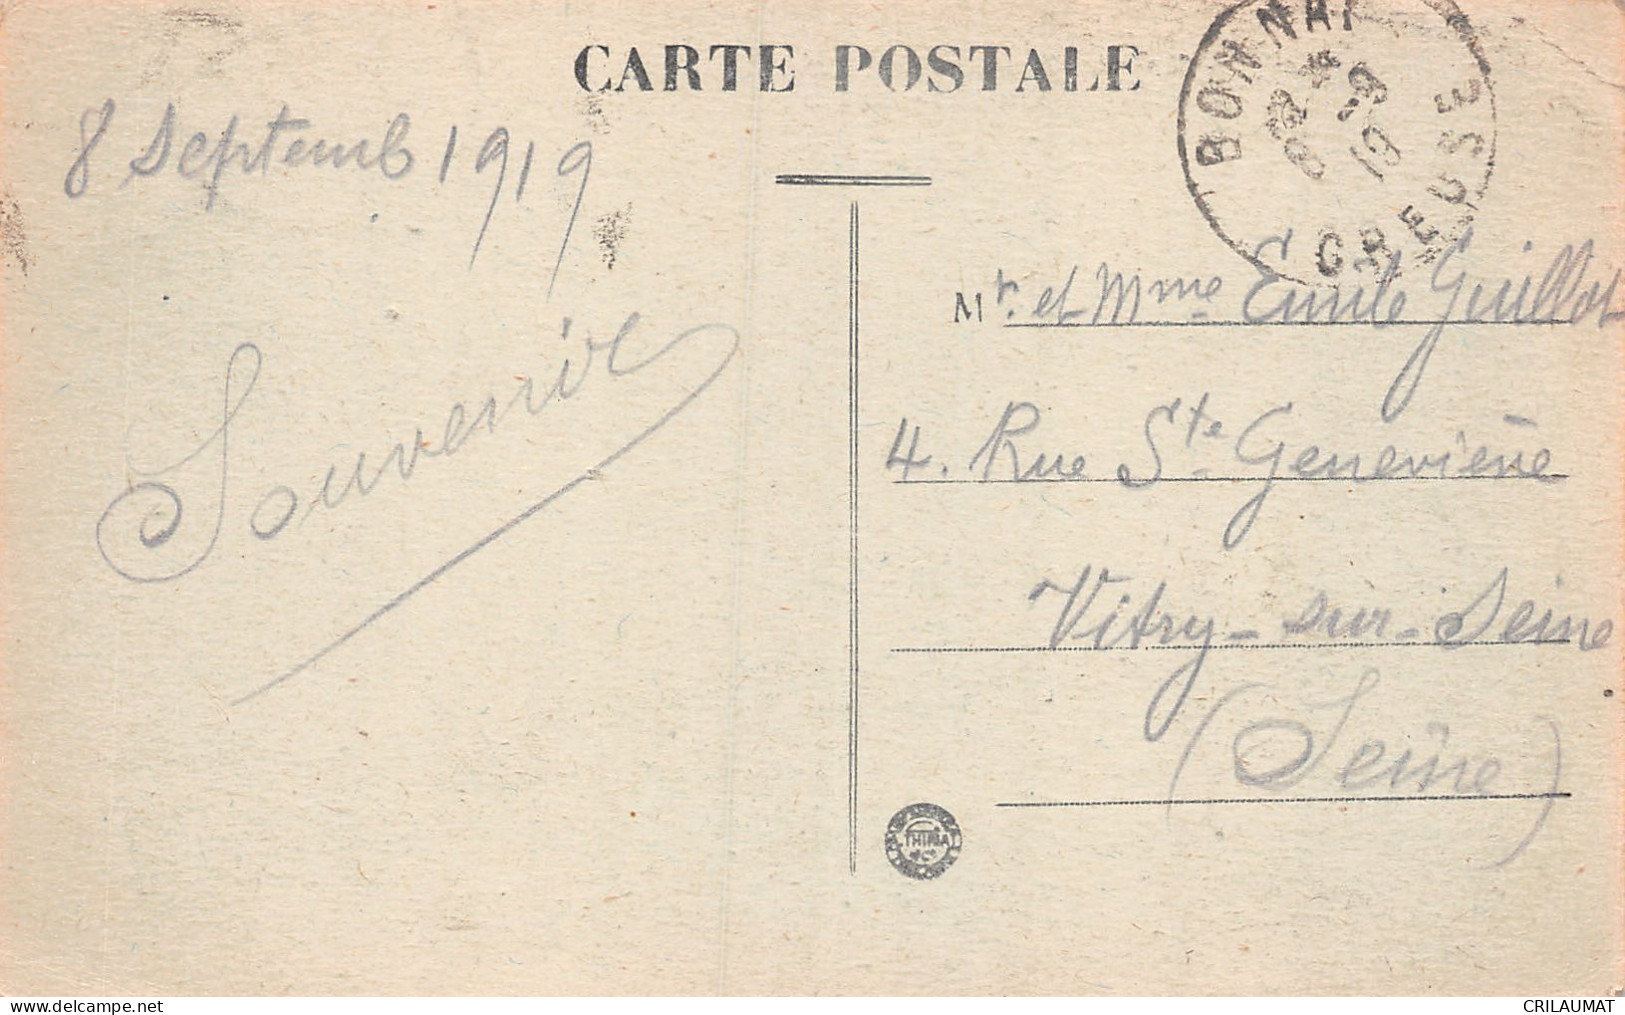 CARTE POSTALE
8 Septemb 1919
BONNAT
8 -9
19
CREUSE
Mr. et Mme Emile Guillot
Souvenir
4. Rue Ste Geneviève
Vitry-sur-Seine
(Seine)
www.delcampe.net
CRILAUMAT